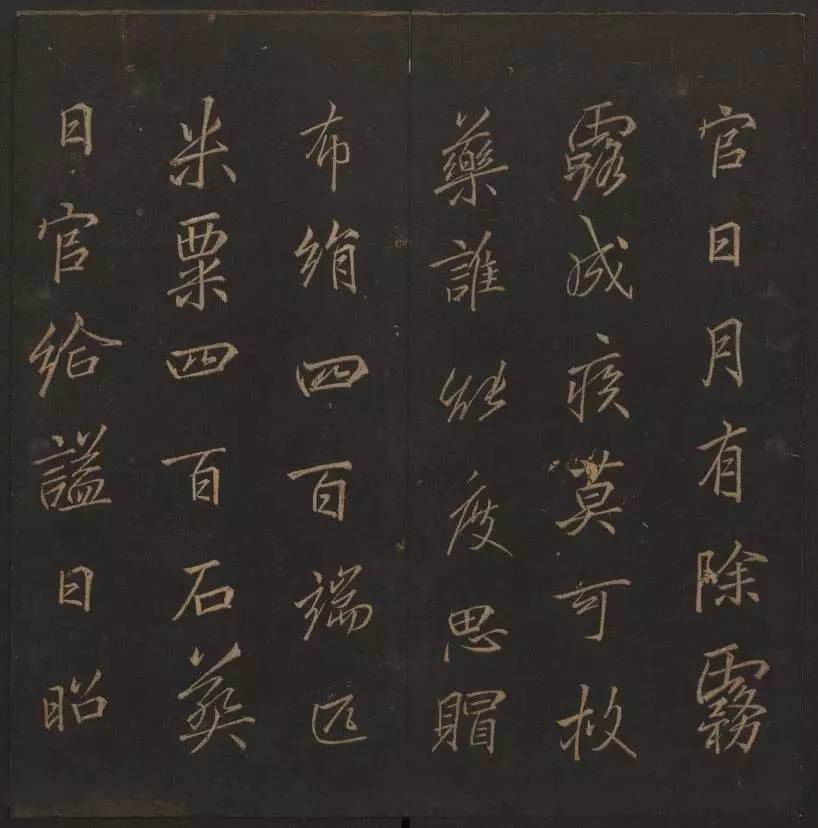 官日月有除霧
露成疾莫可救
藥誰能度思賵
布絹四百端疋
米粟四百石葬
日官給謚曰昭